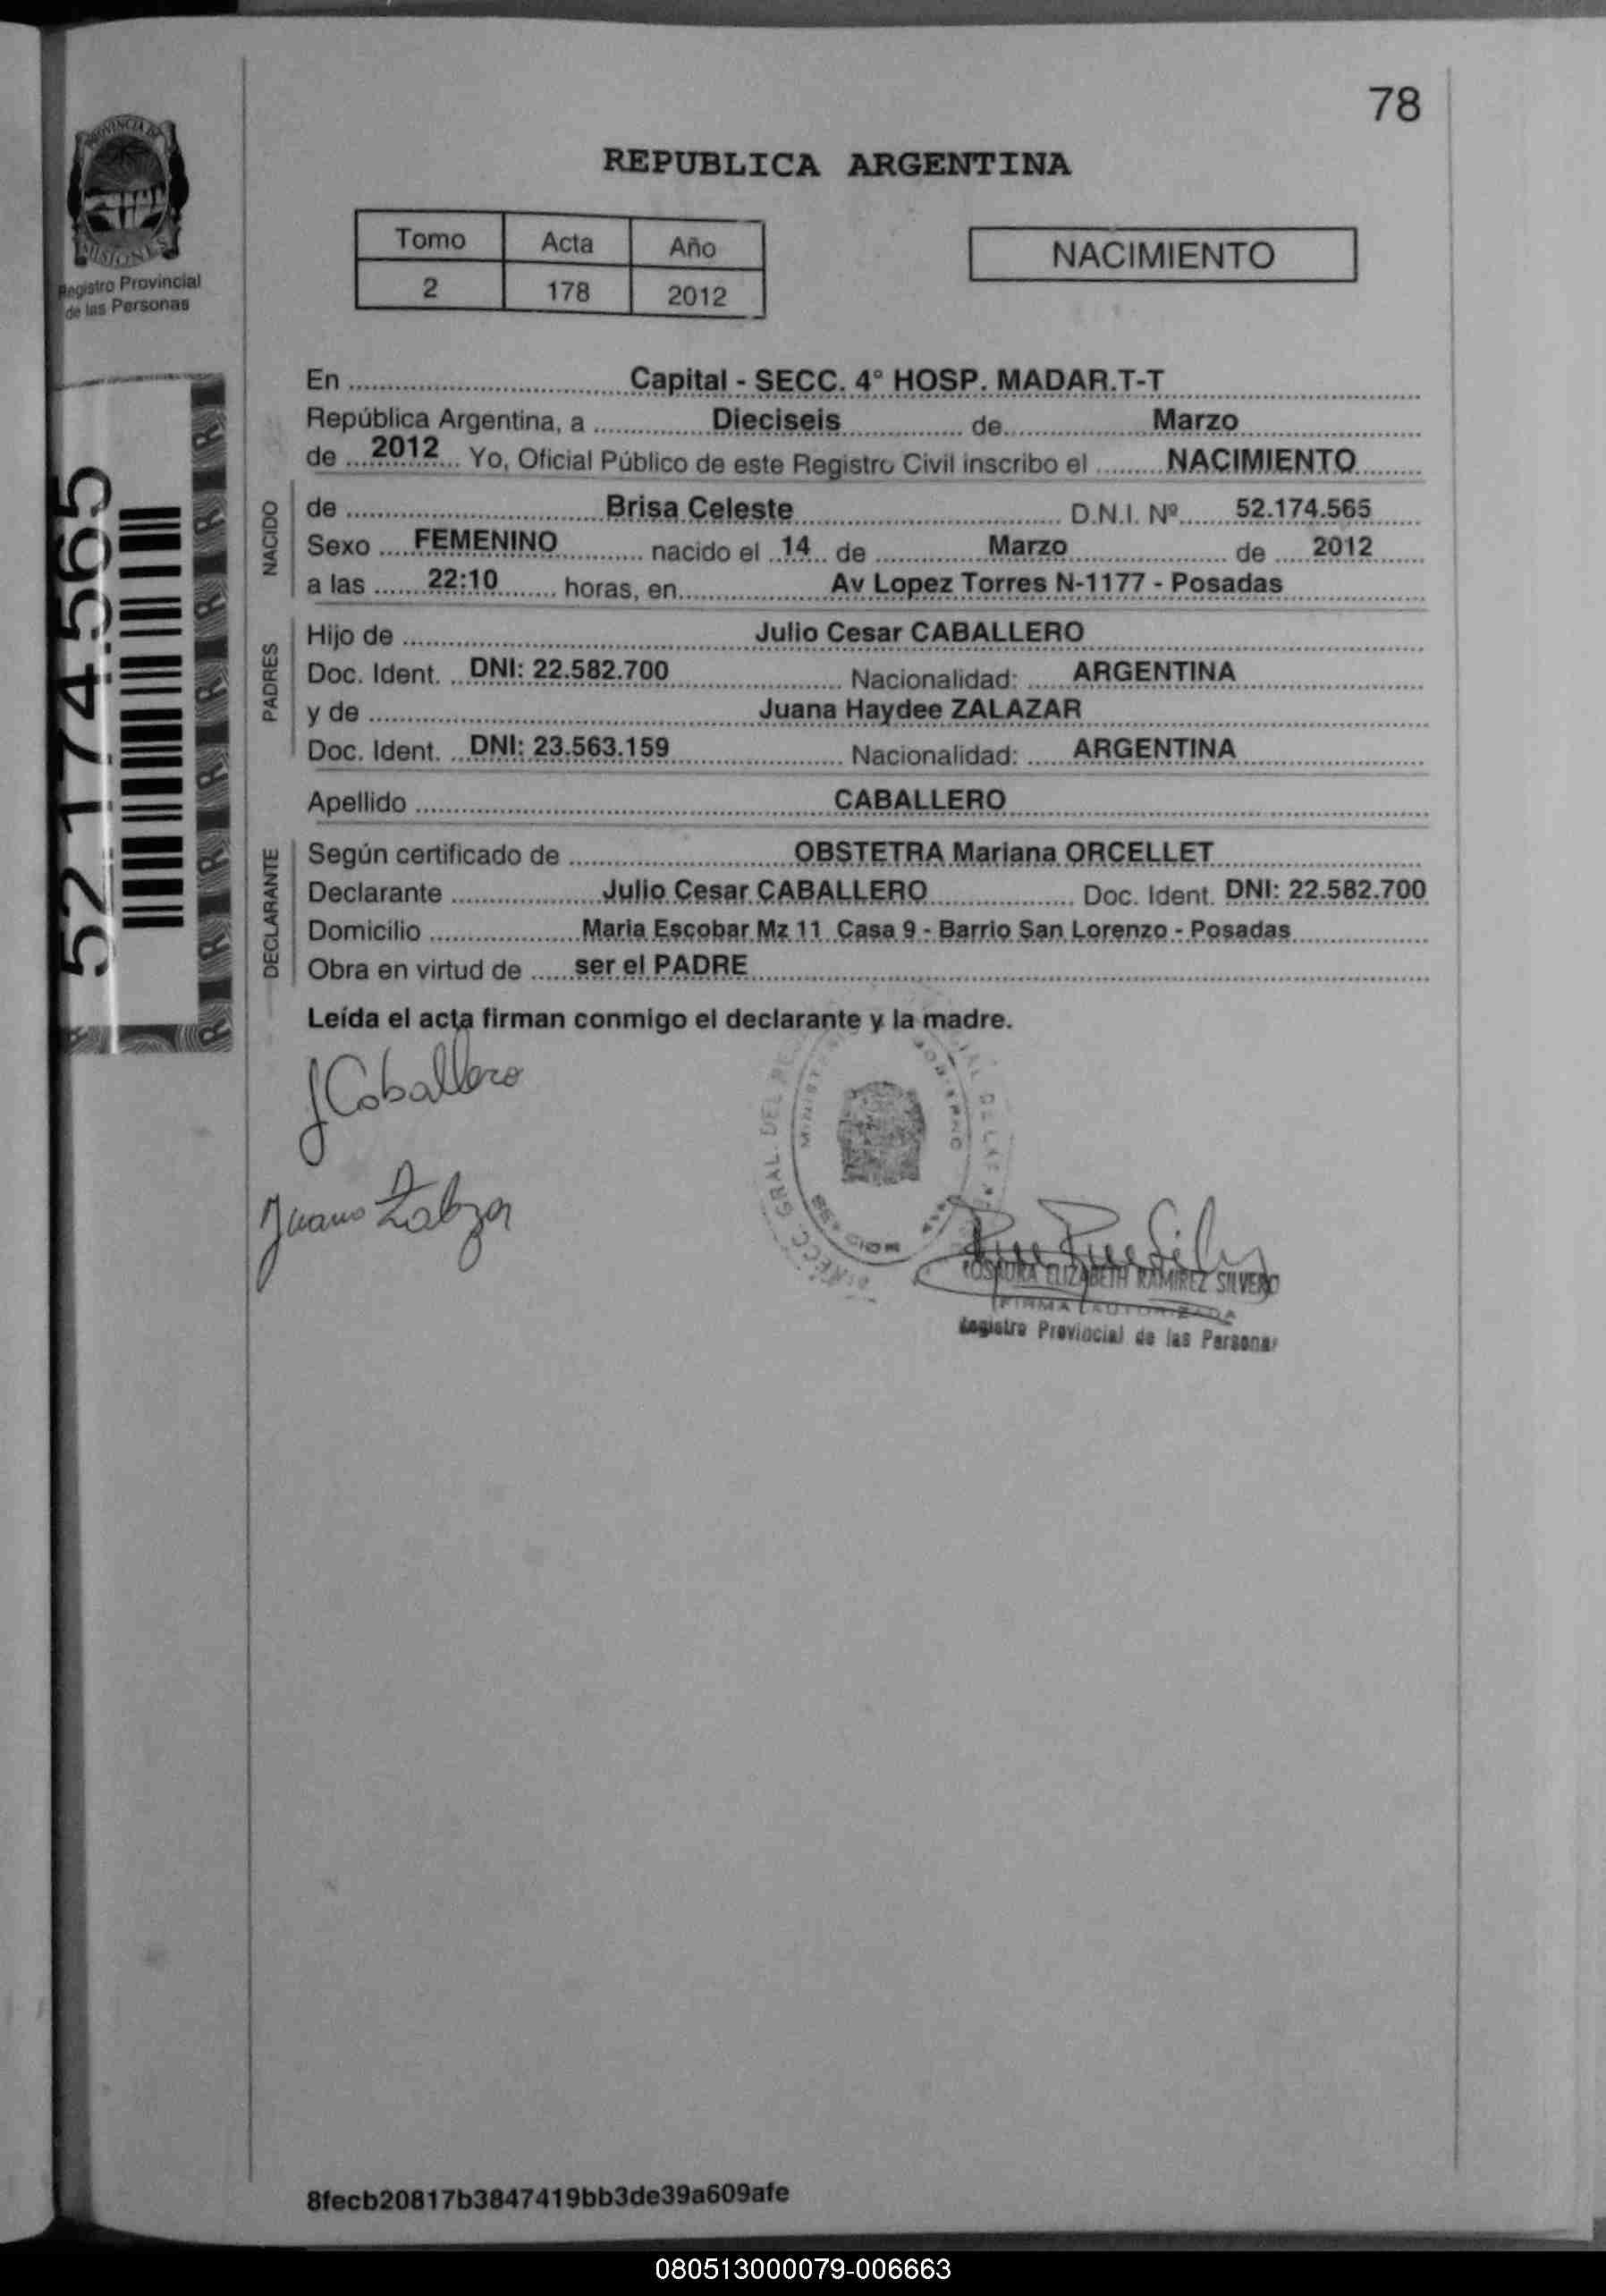 78
PROVINCIA DE
MISIONES
Registro Provincial
de las Personas
REPUBLICA ARGENTINA
Tomo Acta Año
2 178 2012
NACIMIENTO
52.174.565
En Capital - SECC. 4° HOSP. MADAR.T-T
República Argentina, a Dieciseis de Marzo
de 2012 Yo, Oficial Público de este Registro Civil inscribo el NACIMIENTO
NACIDO
de Brisa Celeste D.N.I. Nº 52.174.565
Sexo FEMENINO nacido el 14 de Marzo de 2012
a las 22:10 horas, en Av Lopez Torres N-1177 - Posadas
PADRES
Hijo de Julio Cesar CABALLERO
Doc. Ident. DNI: 22.582.700 Nacionalidad: ARGENTINA
y de Juana Haydee ZALAZAR
Doc. Ident. DNI: 23.563.159 Nacionalidad: ARGENTINA
Apellido CABALLERO
DECLARANTE
Según certificado de OBSTETRA Mariana ORCELLET
Declarante Julio Cesar CABALLERO Doc. Ident. DNI: 22.582.700
Domicilio Maria Escobar Mz 11 Casa 9 - Barrio San Lorenzo - Posadas
Obra en virtud de ser el PADRE
Leída el acta firman conmigo el declarante y la madre.
J Caballero
Juana Zalazar
GRAL. DEL
ELIZABETH RAMIREZ SILVERO
FIRMA AUTORIZADA
Registro Provincial de las Personas
8fecb20817b3847419bb3de39a609afe
080513000079-006663